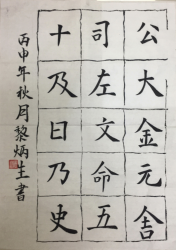 公大金元舍
司左文命五
十及日乃史
丙申年秋月黎炳生書